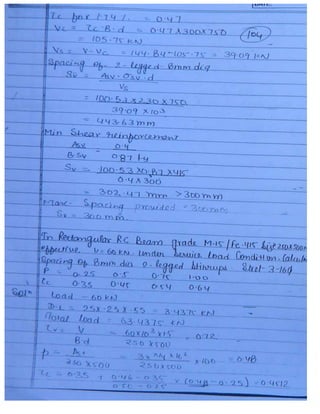 τc for 1.74 % = 0.47
Vc = τc B.d = 0.47 X 300 X 750 (104)
= 105.75 KN
Vs = V-Vc = 144.84-105.75 = 39.09 KN
Spacing of 2-legged 8mm dia
Sv = Asv. σsv. d
Vs
= 100.53 x 230 X 750
39.09 X 10³
= 443.63 mm
Min Shear Reinforcement
Asv = 0.4
B Sv 0.87 fy
Sv = 100.53 X 0.87 X 415
0.4 X 300
= 302.47 mm > 300 mm
Max. Spacing provided = 300mm
Sv = 300 mm.
In Rectangular RC Beam grade M-15 / Fe-415 Size 250X500m
effective. V = 60 KN. under service load condition. Calculate
Spacing of 8mm dia 2-legged stirrups Steel-3-16φ
P = 0.25 0.5 0.75 1.00
τc 0.35 0.45 0.54 0.64
Load = 60 KN
= 3.4375 KN
Total load = 63.4375 KN
τv = V = 60X10³X1.5 = 0.72
Bd 250 X 500
p = Ast = X 100 = 0.48
250 X 500 250 X 500
τc = 0.35 + 0.46 - 0.35 X (0.48 - 0.25) = 0.4512
0.50 - 0.25